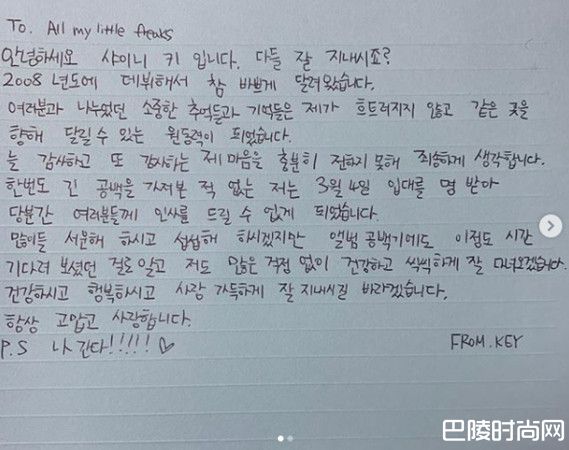 To. All my little freaks
안녕하세요 샤이니 키 입니다. 다들 잘 지내시죠?
2008 년도에 데뷔해서 참 바쁘게 달려왔습니다.
여러분과 나누었던 소중한 추억들과 기억들은 제가 흐트러지지 않고 같은 곳을
향해 달릴 수 있는 원동력이 되었습니다.
늘 감사하고 또 감사하는 제 마음을 충분히 전하지 못해 죄송하게 생각합니다.
한번도 긴 공백을 가져본 적 없는 저는 3월 4일 입대를 명 받아
당분간 여러분들께 인사를 드릴 수 없게 되었습니다.
많이들 서운해 하시고 섭섭해 하시겠지만 앨범 공백기에도 이정도 시간
기다려 보셨던 걸로 알고 저도 많은 걱정 없이 건강하고 씩씩하게 잘 다녀오겠습니다.
건강하시고 행복하시고 사랑 가득하게 잘 지내시길 바라겠습니다.
항상 고맙고 사랑합니다.
P.S 나 간다!!!!! ♡ FROM. KEY
巴陵时尚网